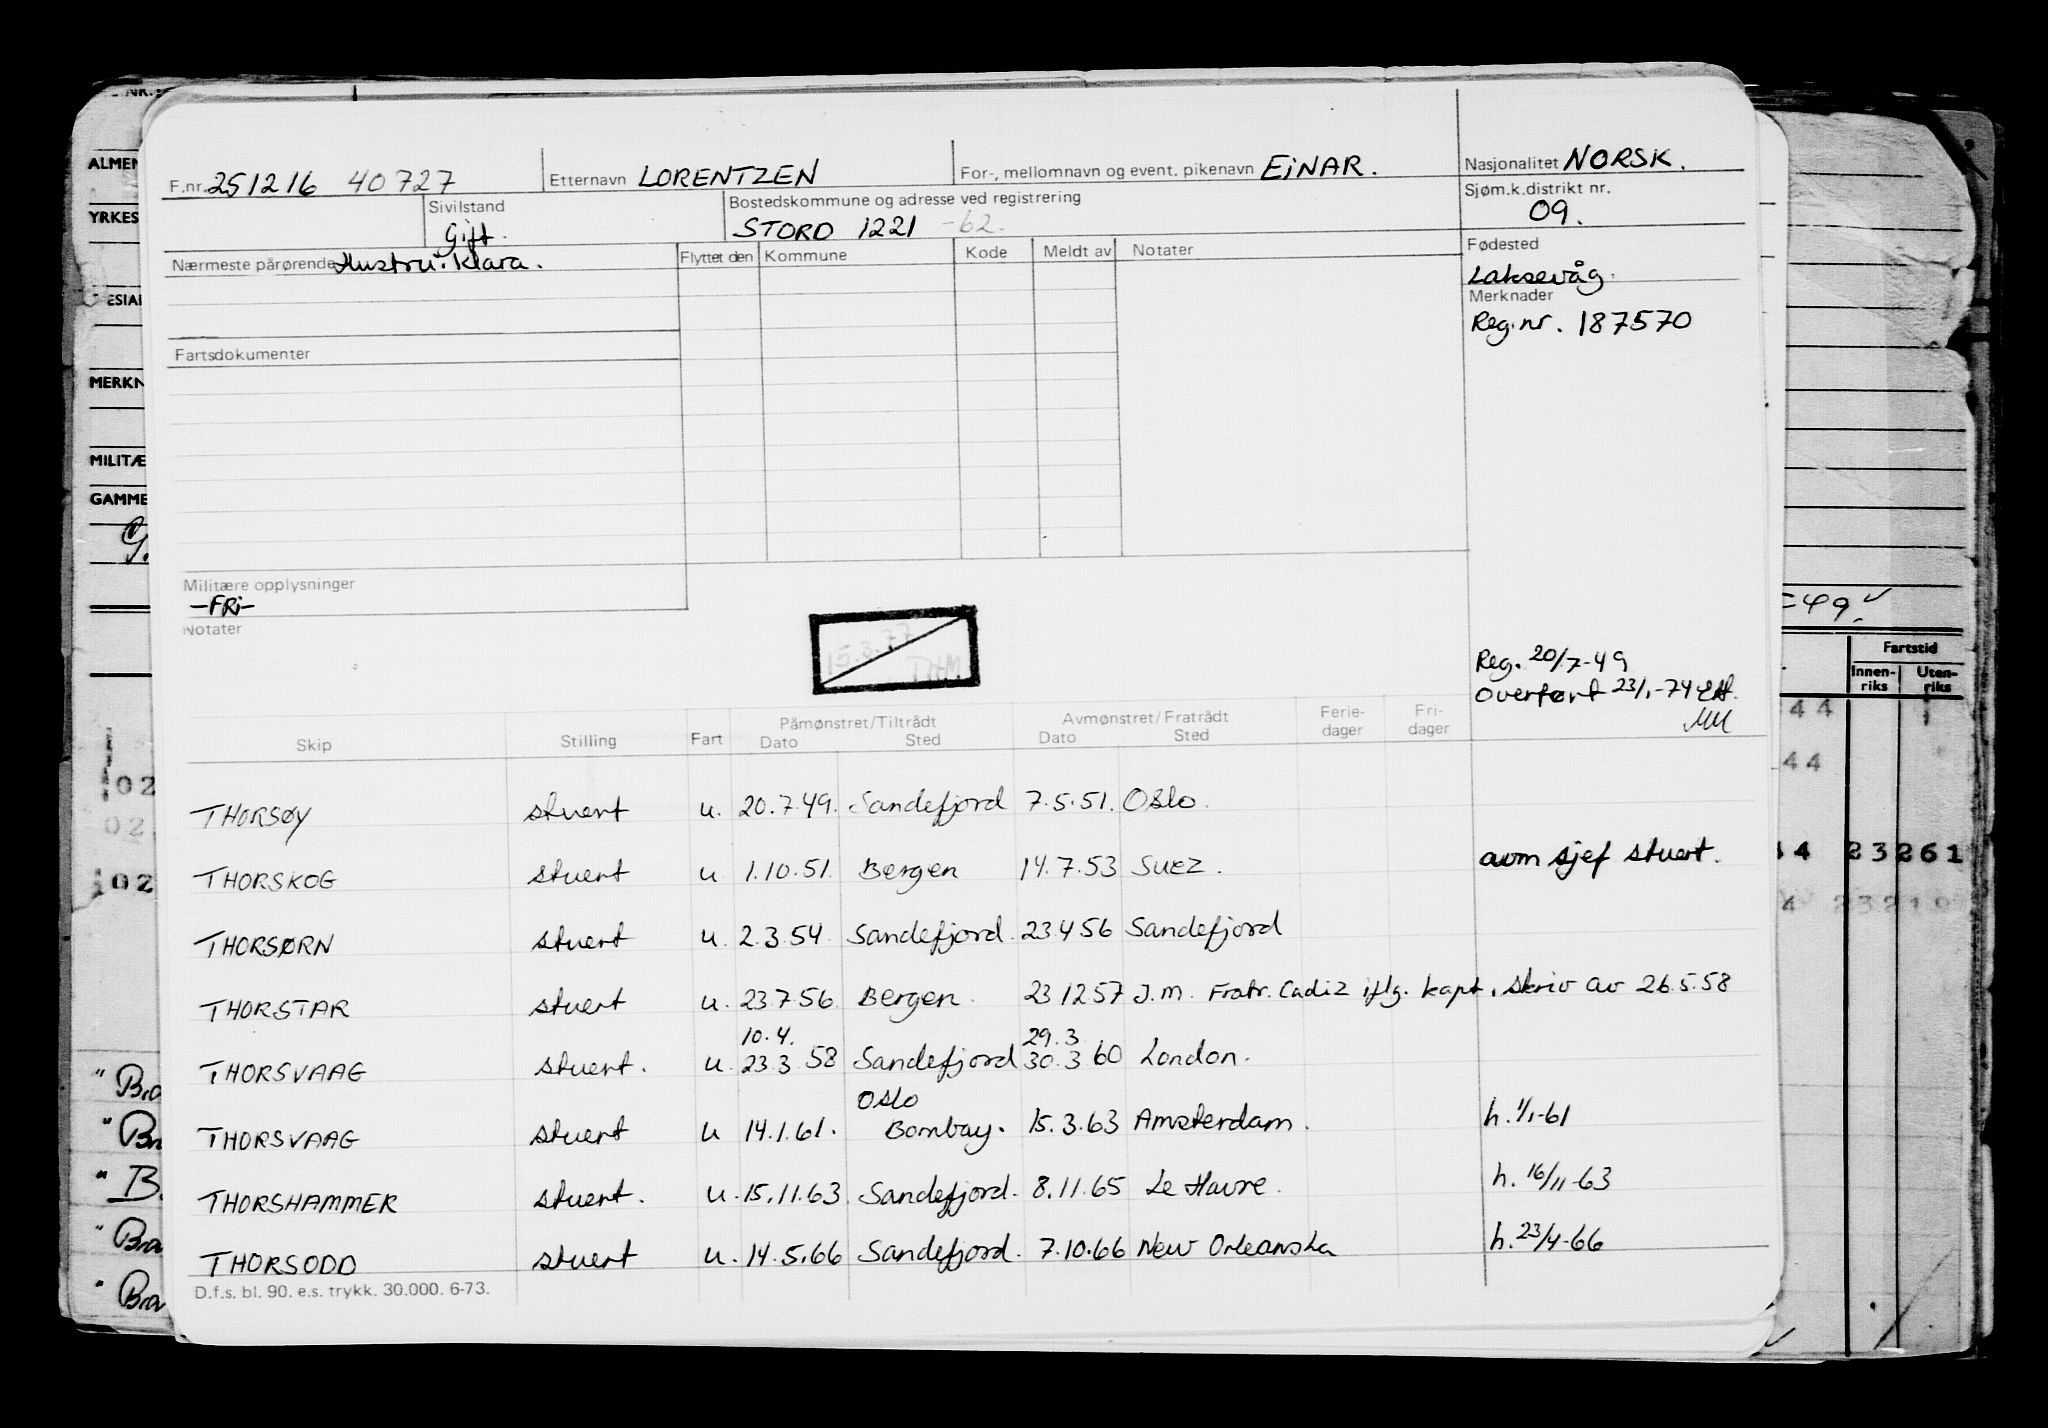 F.nr. 251216 40727 Etternavn LORENTZEN For-, mellomnavn og event. pikenavn EiNAR. Nasjonalitet NORSK.
Sivilstand Gift. Bostedskommune og adresse ved registrering STORD 1221 -62. Sjøm.k.distrikt nr. 09.
Nærmeste pårørende Hustru: Klara. Flyttet den Kommune Kode Meldt av Notater Fødested Laksevåg.
Merknader
Reg.nr. 187570
Fartsdokumenter
Militære opplysninger
-FRi-
Notater
15.3.77
Reg. 20/7-49
Overført 23/1-74
Skip Stilling Fart Påmønstret/Tiltrådt Dato Sted Avmønstret/Fratrådt Dato Sted Ferie-dager Fri-dager
THORSØY stuert u. 20.7.49. Sandefjord 7.5.51. Oslo.
THORSKOG stuert u 1.10.51. Bergen 14.7.53 Suez. avm sjef stuert.
THORSØRN stuert u. 2.3.54. Sandefjord. 23.4 56 Sandefjord
THORSTAR stuert u. 23.7 56. Bergen. 23 12 57 J.m. Fratr. Cadiz iflg. kapt. skriv av 26.5.58
10.4. 29.3
THORSVAAG stuert. u. 23.3 58 Sandefjord 30.3 60 London.
Oslo
THORSVAAG stuert u 14.1.61. Bombay. 15.3.63 Amsterdam. h. 1/1-61
THORSHAMMER stuert. u. 15.11.63. Sandefjord. 8.11.65 Le Havre. h. 16/11-63
THORSODD stuert u. 14.5.66 Sandefjord. 7.10.66 New Orleans La h. 23/4-66
D.f.s. bl. 90. e.s. trykk. 30.000. 6-73.
ALMEN
YRKES
MERKN
MILITÆ
GAMME
49.
Fartstid
Innen-riks Uten-riks
44
44
02
02
02
44 23261
" Bra
" Bra
" B
" Bra
" Bra